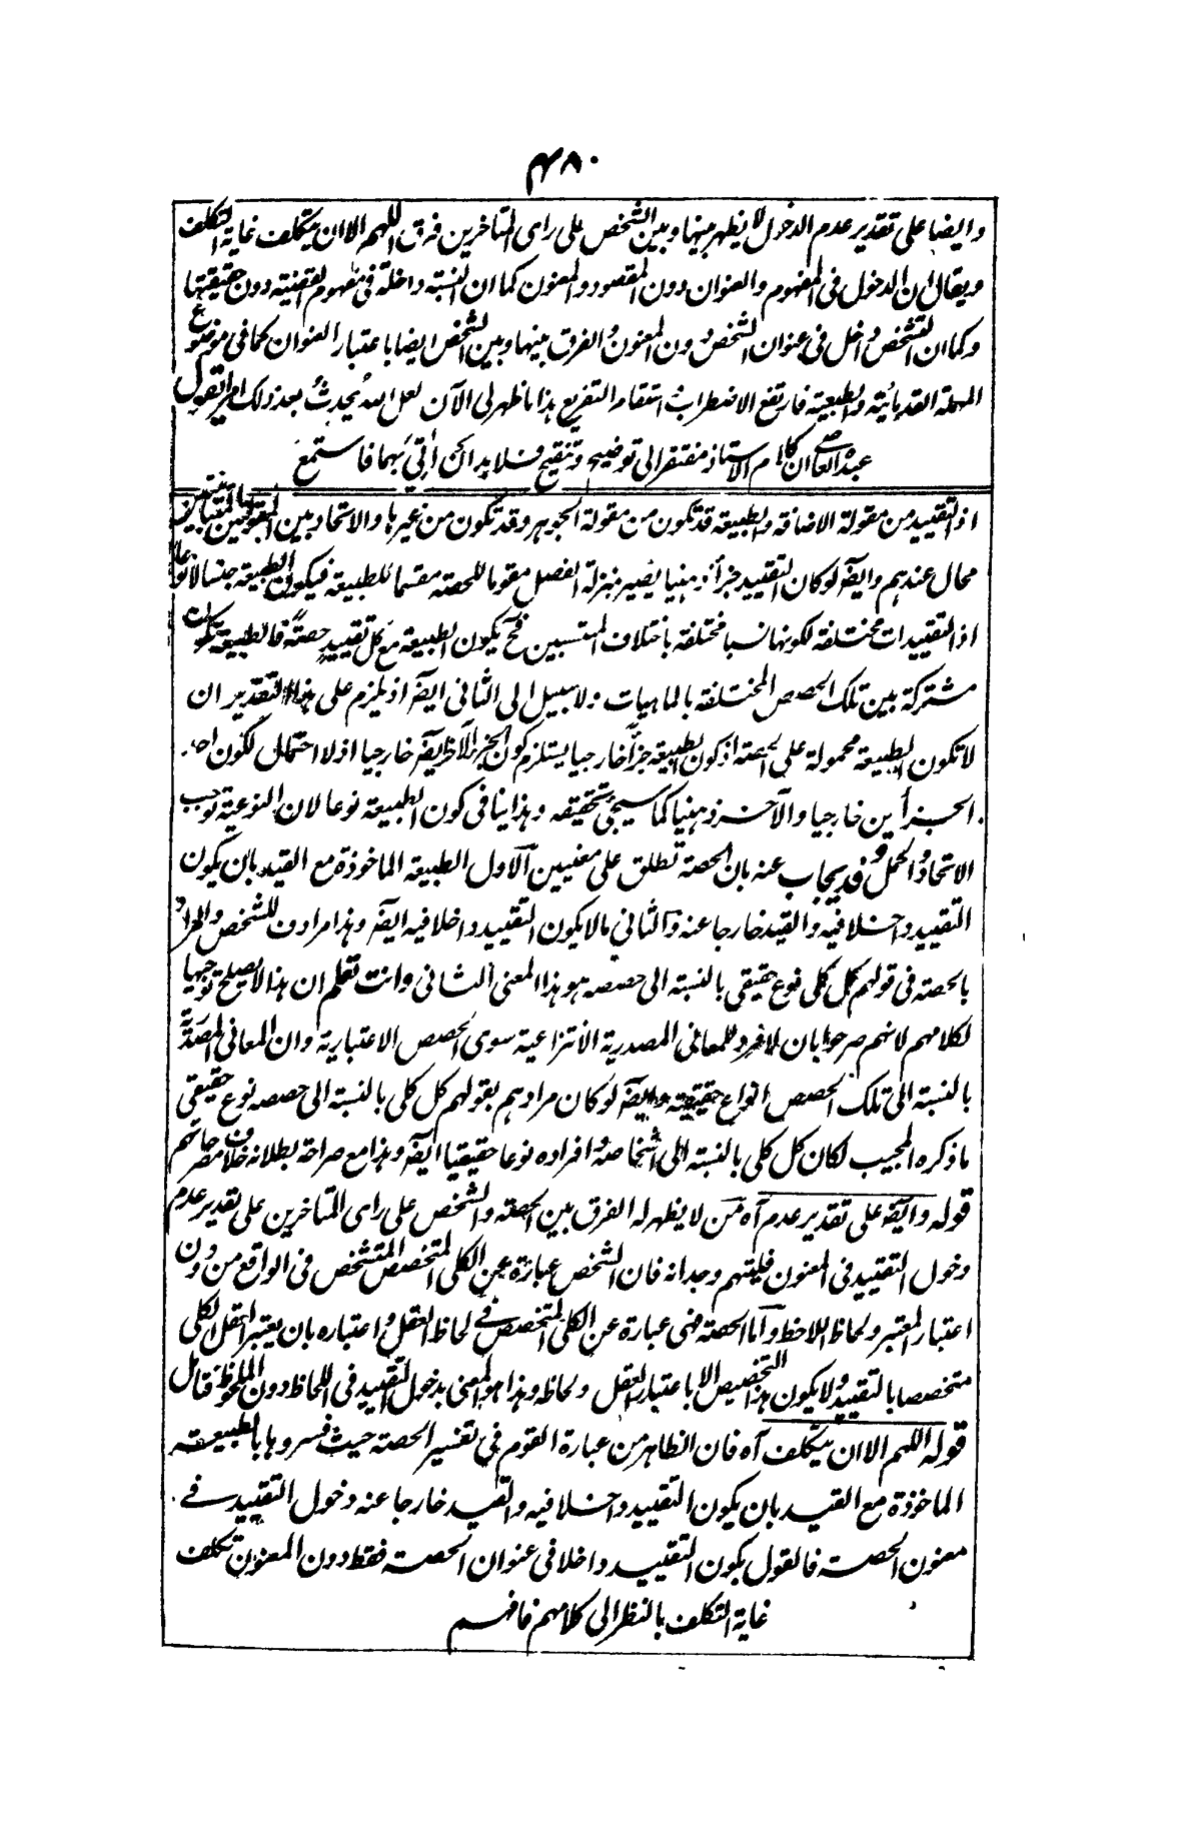 ٤٨٠
وايضا على تقدير عدم الدخول لا يظهر بينها وبين الشخص على راى المتاخرين فرق اللهم الا ان يتكلف غاية التكلف
ويقال ان الدخول فى المفهوم والعنوان دون المقصود والمعنون كما ان النسبة داخلة فى مفهوم القضية دون حقيقتها
وكما ان التشخص داخل فى عنوان الشخص دون المعنون والفرق بينها وبين الشخص ايضا باعتبار العنوان كما فى موضوع
المهملة القدمائية والطبيعية فارتفع الاضطراب واستقام التفريع هذا ما ظهر لى الآن لعل الله يحدث بعد ذلك امرا يقول
عبده العاصى ان كلام الاستاذ مفتقر الى توضيح وتنقيح فلا بد الى ان أتى بهما فاستمع
اذ التقييد من مقولة الاضافة والطبيعة قد تكون من مقولة الجوهر وقد تكون من غيرها والاتحاد بين المقولتين المتباينتين
محال عندهم وايضا لو كان التقييد جزأ ذهنيا يصير بمنزلة الفصل مقوما للحصة مقسما للطبيعة فيكون الطبيعة جنسا لا نوعا
اذ التقييدات مختلفة لكونها نسبا مختلفة باختلاف المنتسبين فح يكون الطبيعة مع كل تقييد حصة فالطبيعة تكون
مشتركة بين تلك الحصص المختلفة بالماهيات ولا سبيل الى الثانى ايضا اذ يلزم على هذا التقدير ان
لا تكون الطبيعة محمولة على الحصة اذ كون الطبيعة جزأ خارجيا يستلزم كون الجزء الآخر ايضا خارجيا اذ لا احتمال لكون احد
الجزأين خارجيا والآخر ذهنيا كما سيجئ تحقيقه وهذا ينافى كون الطبيعة نوعا لان النوعية توجب
الاتحاد والحمل وقد يجاب عنه بان الحصة تطلق على معنيين الاول الطبيعة الماخوذة مع القيد بان يكون
التقييد داخلا فيه والقيد خارجا عنه والثانى ما لا يكون التقييد داخلا فيه ايضا وهذا مرادف للشخص والمراد
بالحصة فى قولهم كل كلى نوع حقيقى بالنسبة الى حصصه هو هذا المعنى الثانى وانت تعلم ان هذا لا يصلح توجيها
لكلامهم لانهم صرحوا بان لا فرد للمعانى المصدرية الانتزاعية سوى الحصص الاعتبارية وان المعانى المصدرية
بالنسبة الى تلك الحصص انواع حقيقية وايضا لو كان مرادهم بقولهم كل كلى بالنسبة الى حصصه نوع حقيقى
ما ذكره المجيب لكان كل كلى بالنسبة الى اشخاصه وافراده نوعا حقيقيا ايضا وهذا مع صراحة بطلانه خلاف مصرحاتهم
قوله وايضا على تقدير عدم آه من لا يظهر له الفرق بين الحصة والشخص على راى المتاخرين على تقدير عدم
دخول التقييد فى المعنون فليتهم وجدانه فان الشخص عبارة عن الكلى المتخصص المتشخص فى الواقع من دون
اعتبار المعتبر ولحاظ اللاحظ واما الحصة فهى عبارة عن الكلى المتخصص فى لحاظ العقل واعتباره بان يعتبر العقل الكلى
متخصصا بالتقييد ولا يكون هذا التخصيص الا باعتبار العقل ولحاظه وهذا هو المعنى بدخول التقييد فى اللحاظ دون الملحوظ فتامل
قوله اللهم الا ان يتكلف آه فان الظاهر من عبارة القوم فى تفسير الحصة حيث فسروها بالطبيعة
الماخوذة مع القيد بان يكون التقييد داخلا فيه والقيد خارجا عنه دخول التقييد فى
معنون الحصة فالقول بكون التقييد داخلا فى عنوان الحصة فقط دون المعنون تكلف
غاية التكلف بالنظر الى كلامهم فافهم